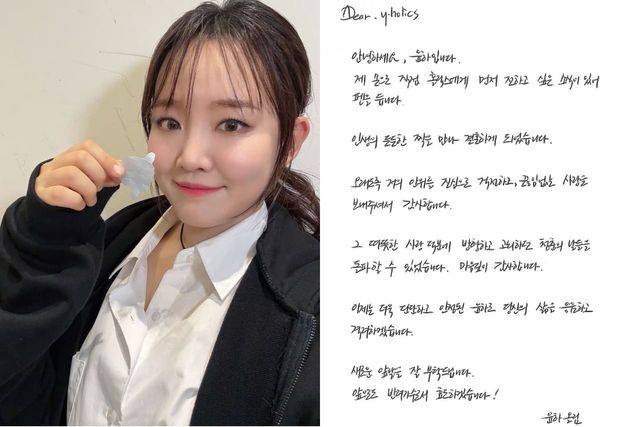 Dear. y.holics
안녕하세요, 윤하입니다.
제 손으로 직접 홀릭스에게 먼저 전하고 싶은 소식이 있어
펜을 듭니다.
인생의 든든한 짝을 만나 결혼하게 되었습니다.
저의 안위를 진심으로 걱정하고, 끊임없는 사랑을
보내주셔서 감사합니다.
그 따뜻한 사랑 덕분에 방황하고 고뇌하던 청춘의 날들을
돌파할 수 있었습니다. 마음깊이 감사합니다.
이제는 더욱 단단하고 안정된 윤하로 당신의 삶을 응원하고
격려하겠습니다.
새로운 앞날을 잘 부탁드립니다.
앞으로도 반려가수로서 효도하겠습니다!
윤하 드림